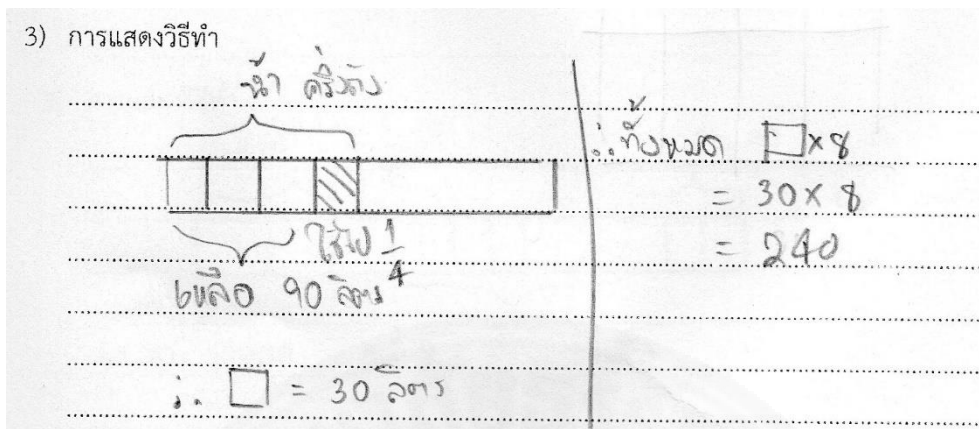 3) การแสดงวิธีทำ
น้ำ ครึ่งถัง
ใช้ไป 1/4
เหลือ 90 ลิตร
∴ □ = 30 ลิตร
∴ ทั้งหมด □ × 8
= 30 × 8
= 240